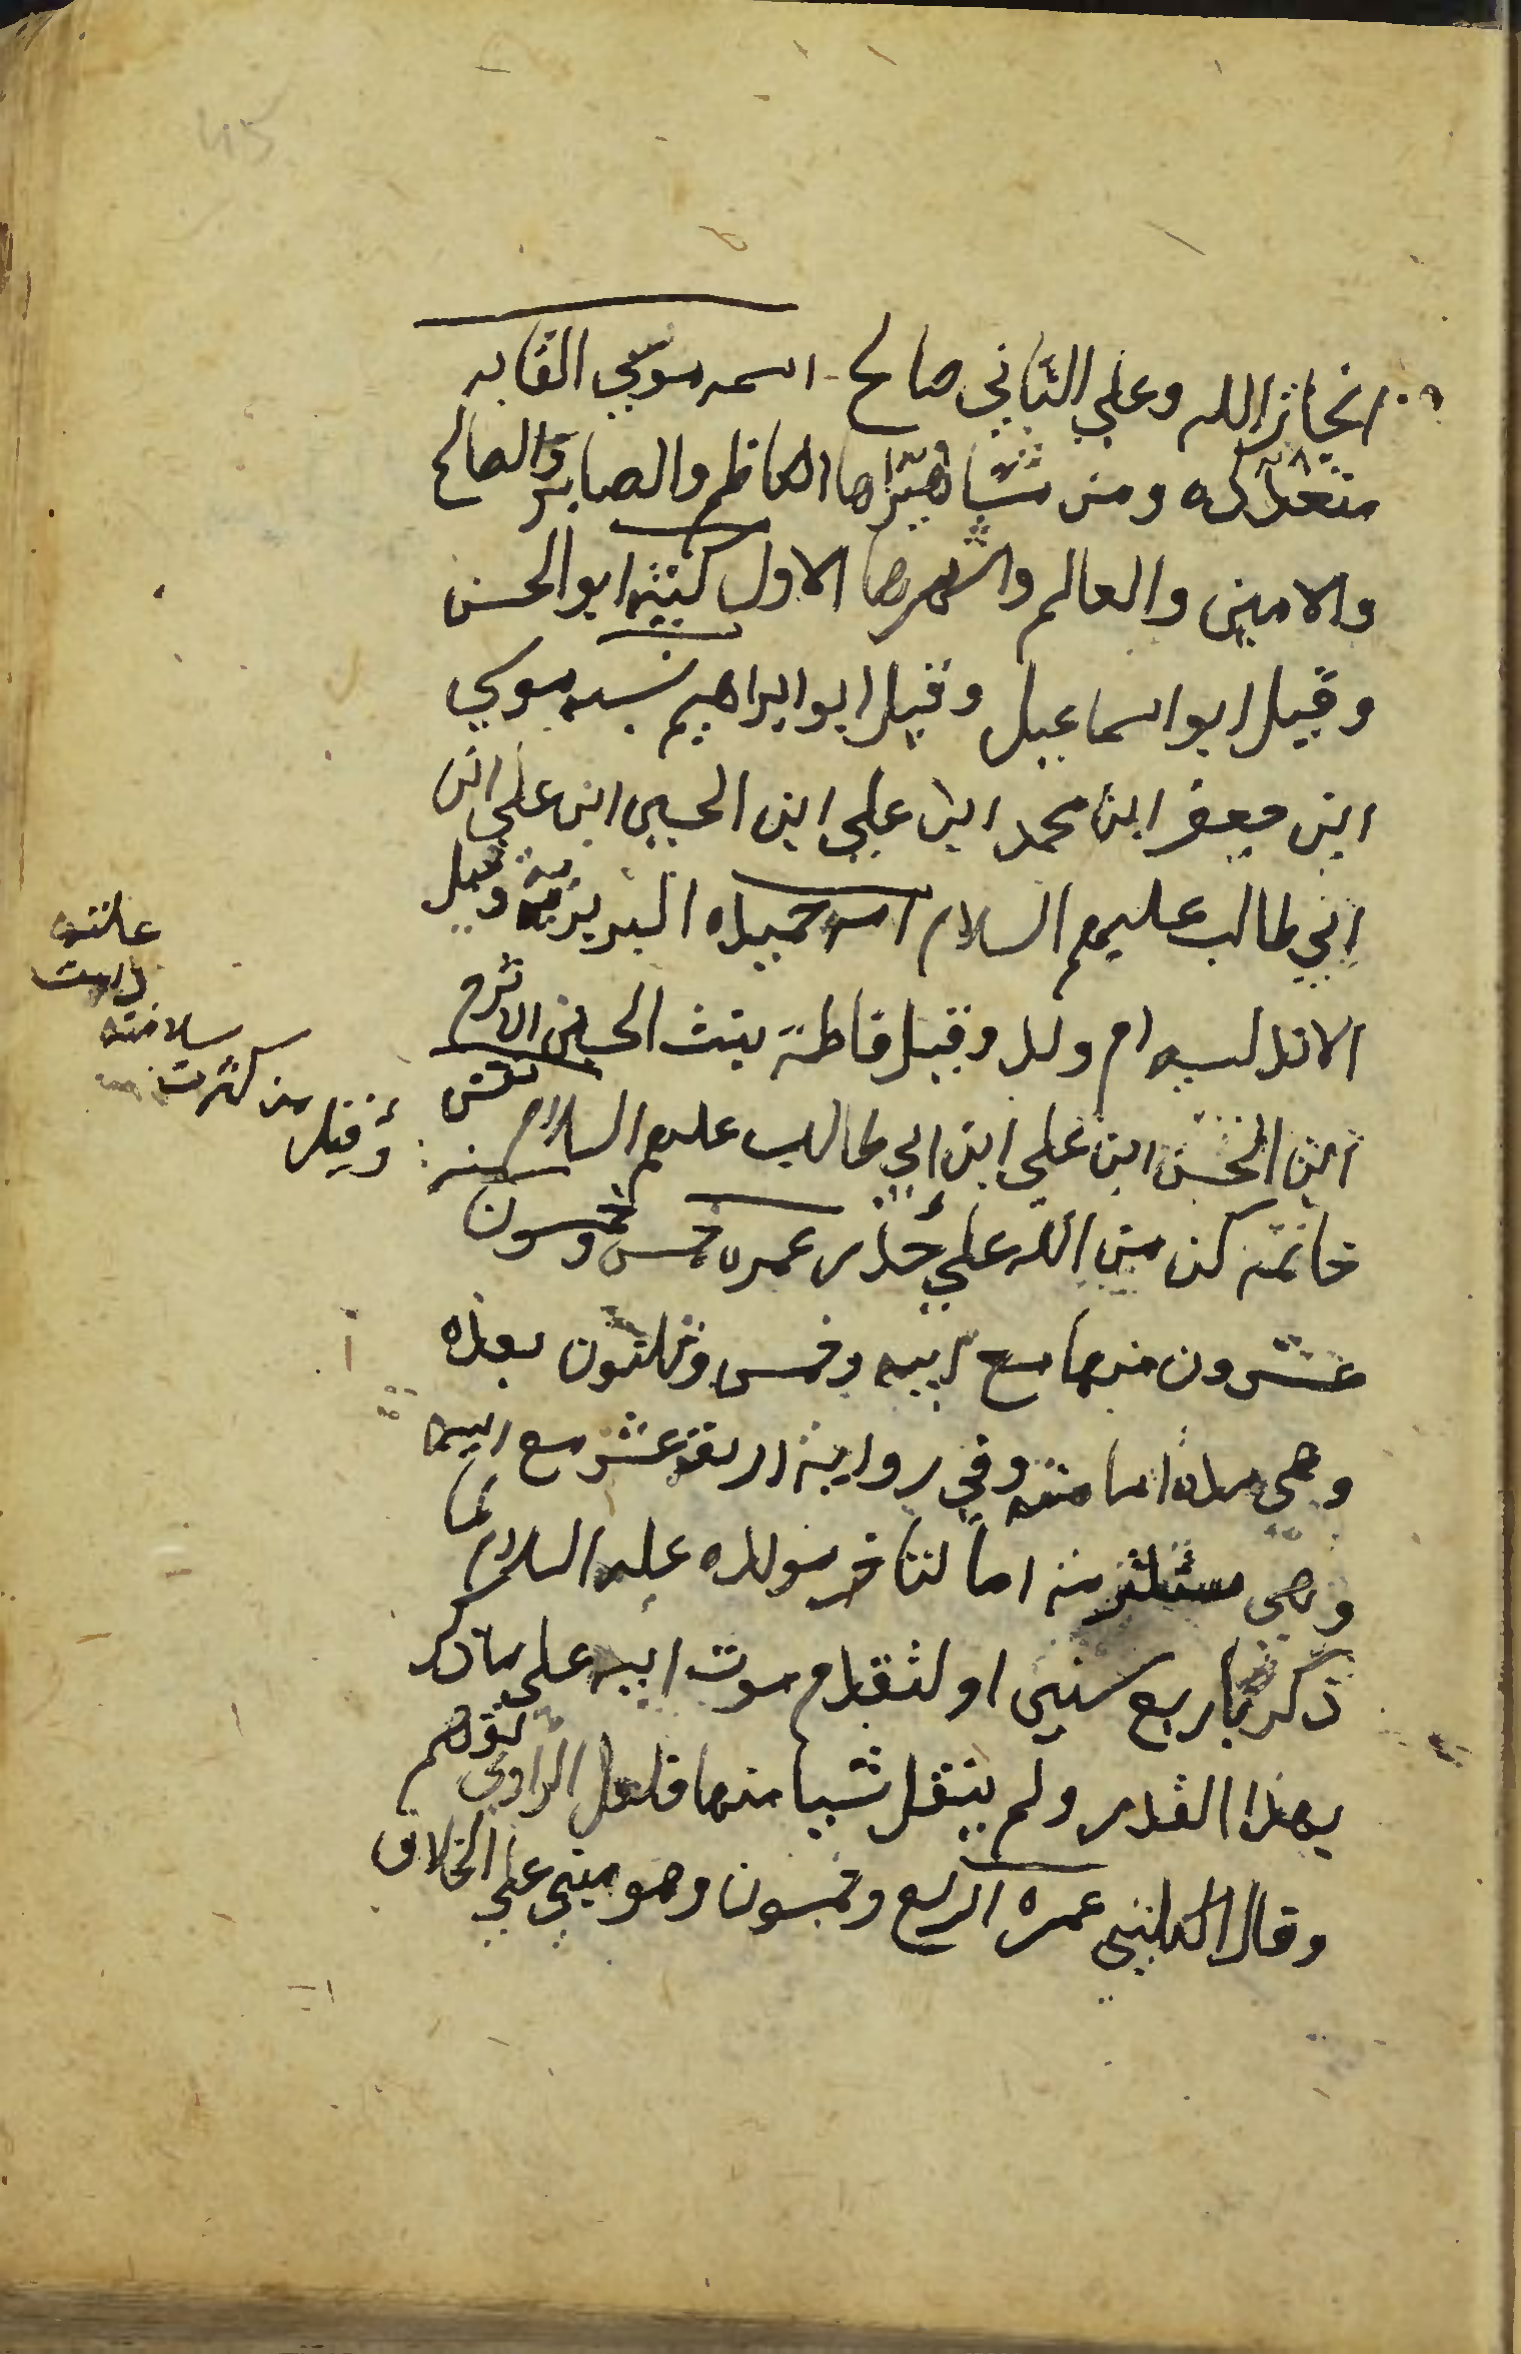 انحاز الله وعلي الثاني صالح اسمه موسي القابه
متعدده ومن مشاهيرها الكاظم والصابر والصالح
والامين والعالم واشهرها الاول كنيته ابو الحسن
وقيل ابو اسماعيل وقيل ابو ابراهيم نسبه موسي
ابن جعفر ابن محمد ابن علي ابن الحسين ابن علي ابن
ابي طالب عليهم السلام امه حميده البربريه وقيل
الاندلسيه ام ولد وقيل فاطمة بنت الحسين الاثرم
ابن الحسن ابن علي ابن ابي طالب عليهم السلام نقش
خاتمه كن من الله علي حذر عمره خمس وخمسون سنه
عشرون منها مع ابيه وخمس وثلثون بعده
وهي مدة امامته وفي رواية اربعة عشر مع ابيه
وهي مستلزمة اما لتاخر مولده عليه السلام عما
ذكرنا باربع سنين او لتقدم موت ابيه علي ما ذكر
بهذا القدر ولم ينقل شيا منها فلعل الراوي توهم
وقال الكليني عمره اربع وخمسون وهو مبني علي الخلاف
وقيل من كثرت
سلامته
دامت
علته